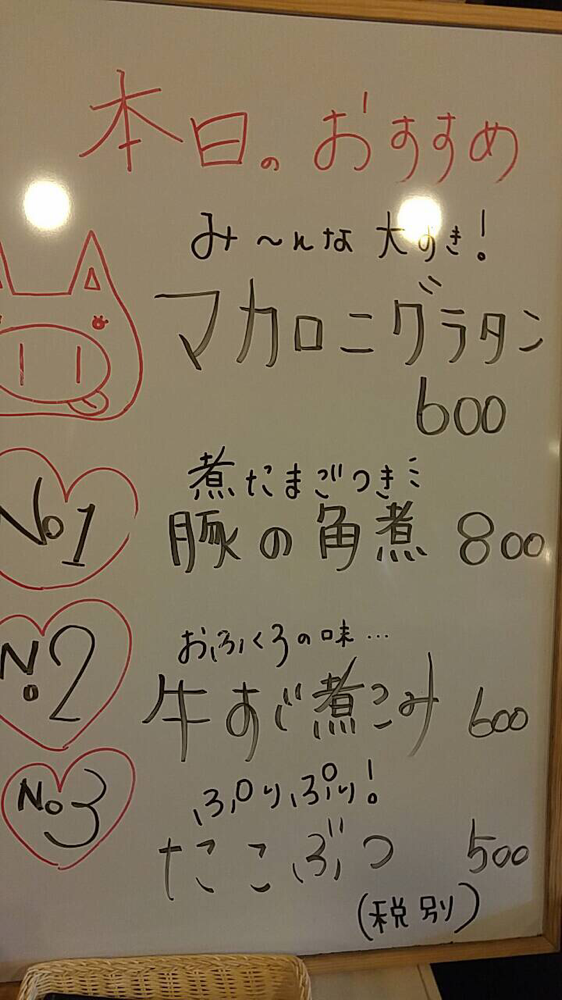 本日のおすすめ
み〜んな大すき!
マカロニグラタン
600
No1
煮たまごつき…
豚の角煮 800
No2
おふくろの味…
牛すじ煮こみ 600
No3
ぷりぷり!
たこぶつ 500
(税別)